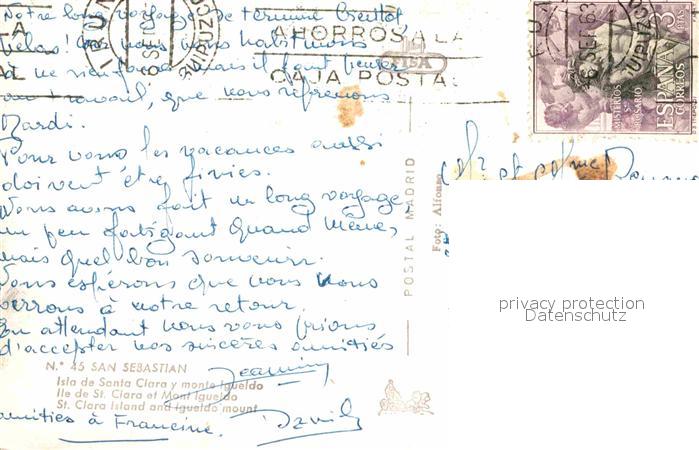 Notre long voyage se termine bientôt
hélas! Car nous nous habituons
à ne rien faire mais il faut penser
au travail, que nous reprenons
Mardi.
Pour vous les vacances aussi
doivent être finies.
Nous avons fait un long voyage,
un peu fatigant quand même,
mais quel bon souvenir.
Nous espérons que nous vous
verrons à notre retour.
En attendant nous vous prions
d'accepter nos sincères amitiés
N.° 45 SAN SEBASTIAN
Isla de Santa Clara y monte Igueldo
Ile de St. Clara et Mont Igueldo
St. Clara Island and Igueldo mount
amitiés à Francine.
AHORROS A LA
CAJA POSTAL
IRUN
GUIPUZCO
6 SEP 63
FISA
3
PTAS
ESPAÑA
CORREOS
MISTERIOS
Sto
ROSARIO
POSTAL MADRID
Foto: Alfonso
Mr et Mme
privacy protection
Datenschutz